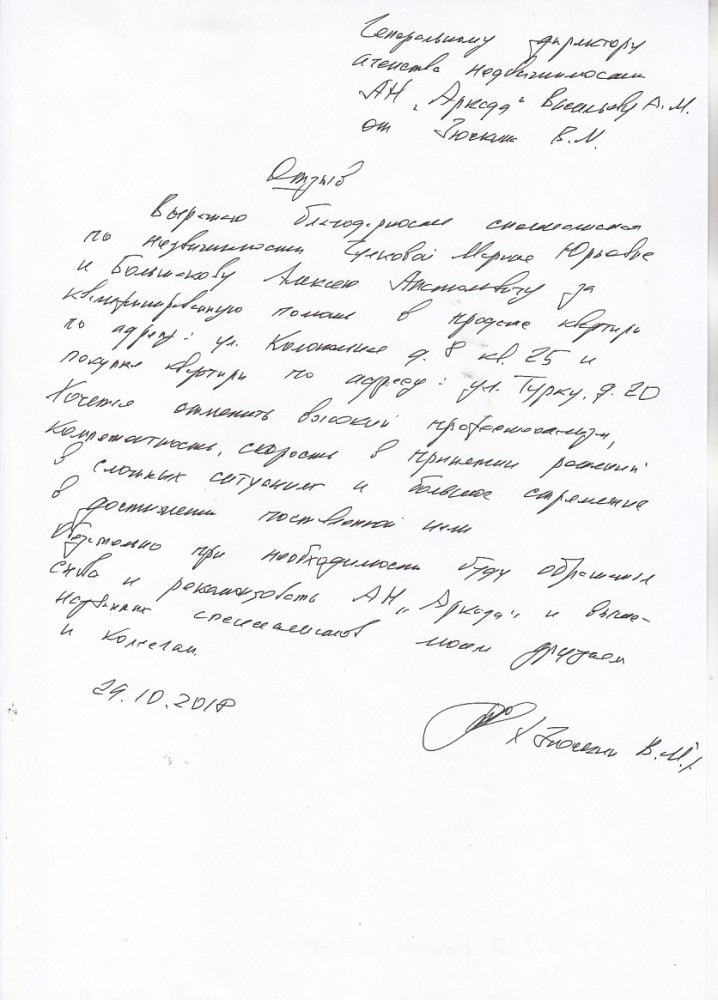 Генеральному директору
агенства недвижимости
АН "Аркада" Васильеву А.М.
от Зюскина В.М.
Отзыв
Выражаю благодарность специалистам
по недвижимости Марине Юрьевне
и Большакову Алексею Анатольевичу за
квалифицированную помощь в продаже квартиры
по адресу: ул. д. 8 кв. 25 и
покупке квартиры по адресу: ул. Турку, д. 20
Хочется отметить высокий профессионализм,
компетентность, скорость в принятии решений
в сложных ситуациях и большое стремление
в достижении поставленной цели
при необходимости буду обращаться
снова и рекомендовать АН "Аркада" и выше-
названных специалистов моим друзьям
и коллегам
29.10.2018
Зюскин В.М.